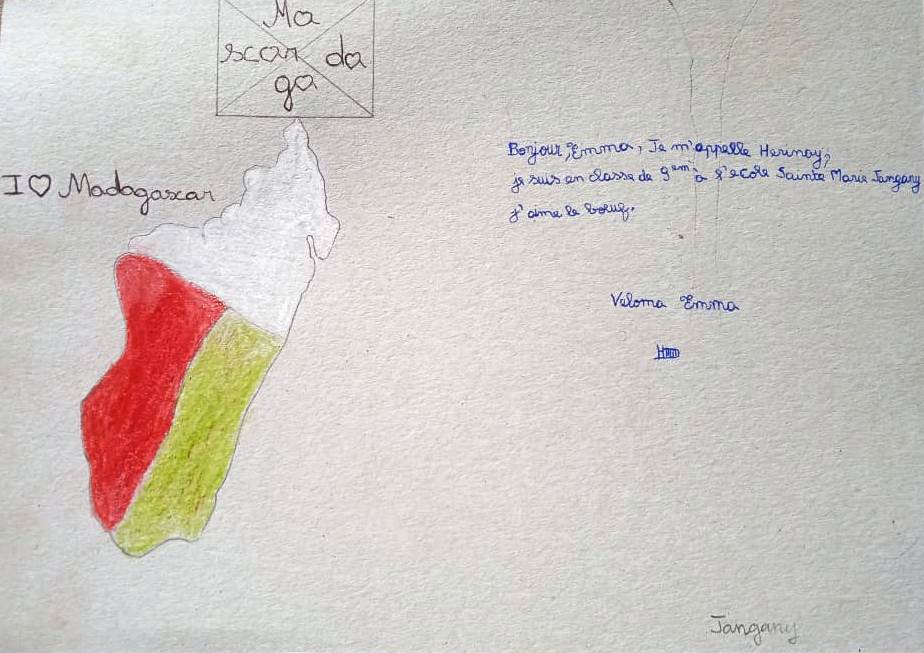 Ma
scar da
ga
I ♡ Madagascar
Bonjour, Emma, Je m'appelle Herinay,
je suis en classe de 9em à l'ecole Sainte Marie Jangany
j'aime le bœuf.
Veloma Emma
Jangany